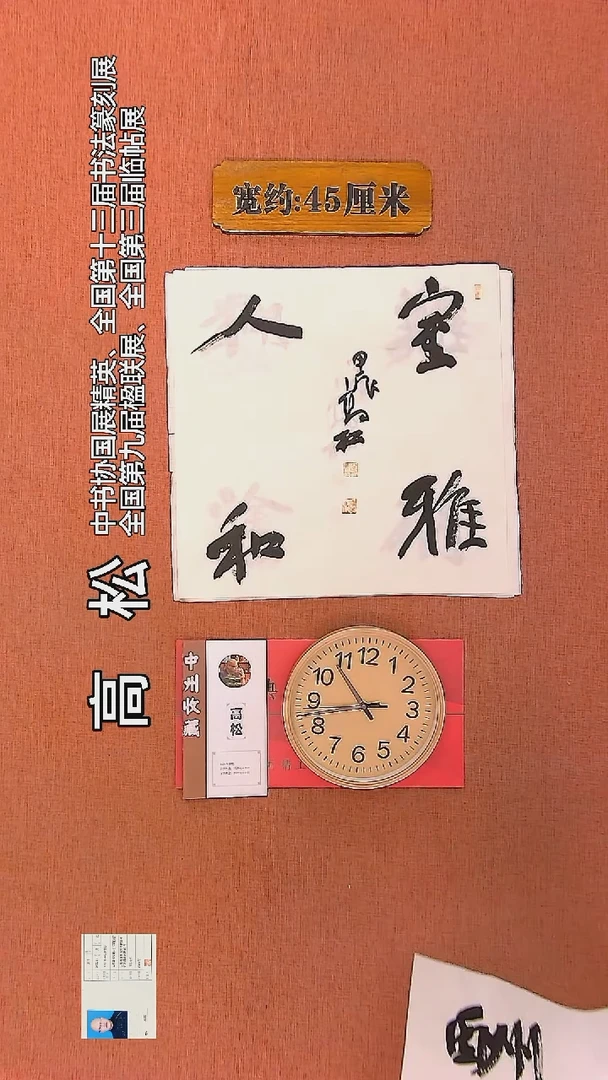 高 松
中书协国展精英、全国第十三届书法篆刻展
全国第九届楹联展、全国第三届临帖展
宽约:45厘米
室雅
人和
高松
高松
12
1
2
3
4
5
6
7
8
9
10
11